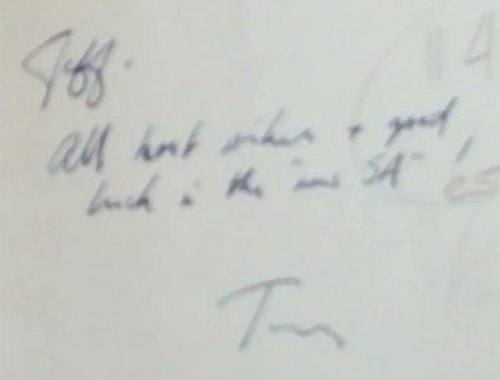 Jeff.
All best wishes + good
luck in the "new SA"!
T